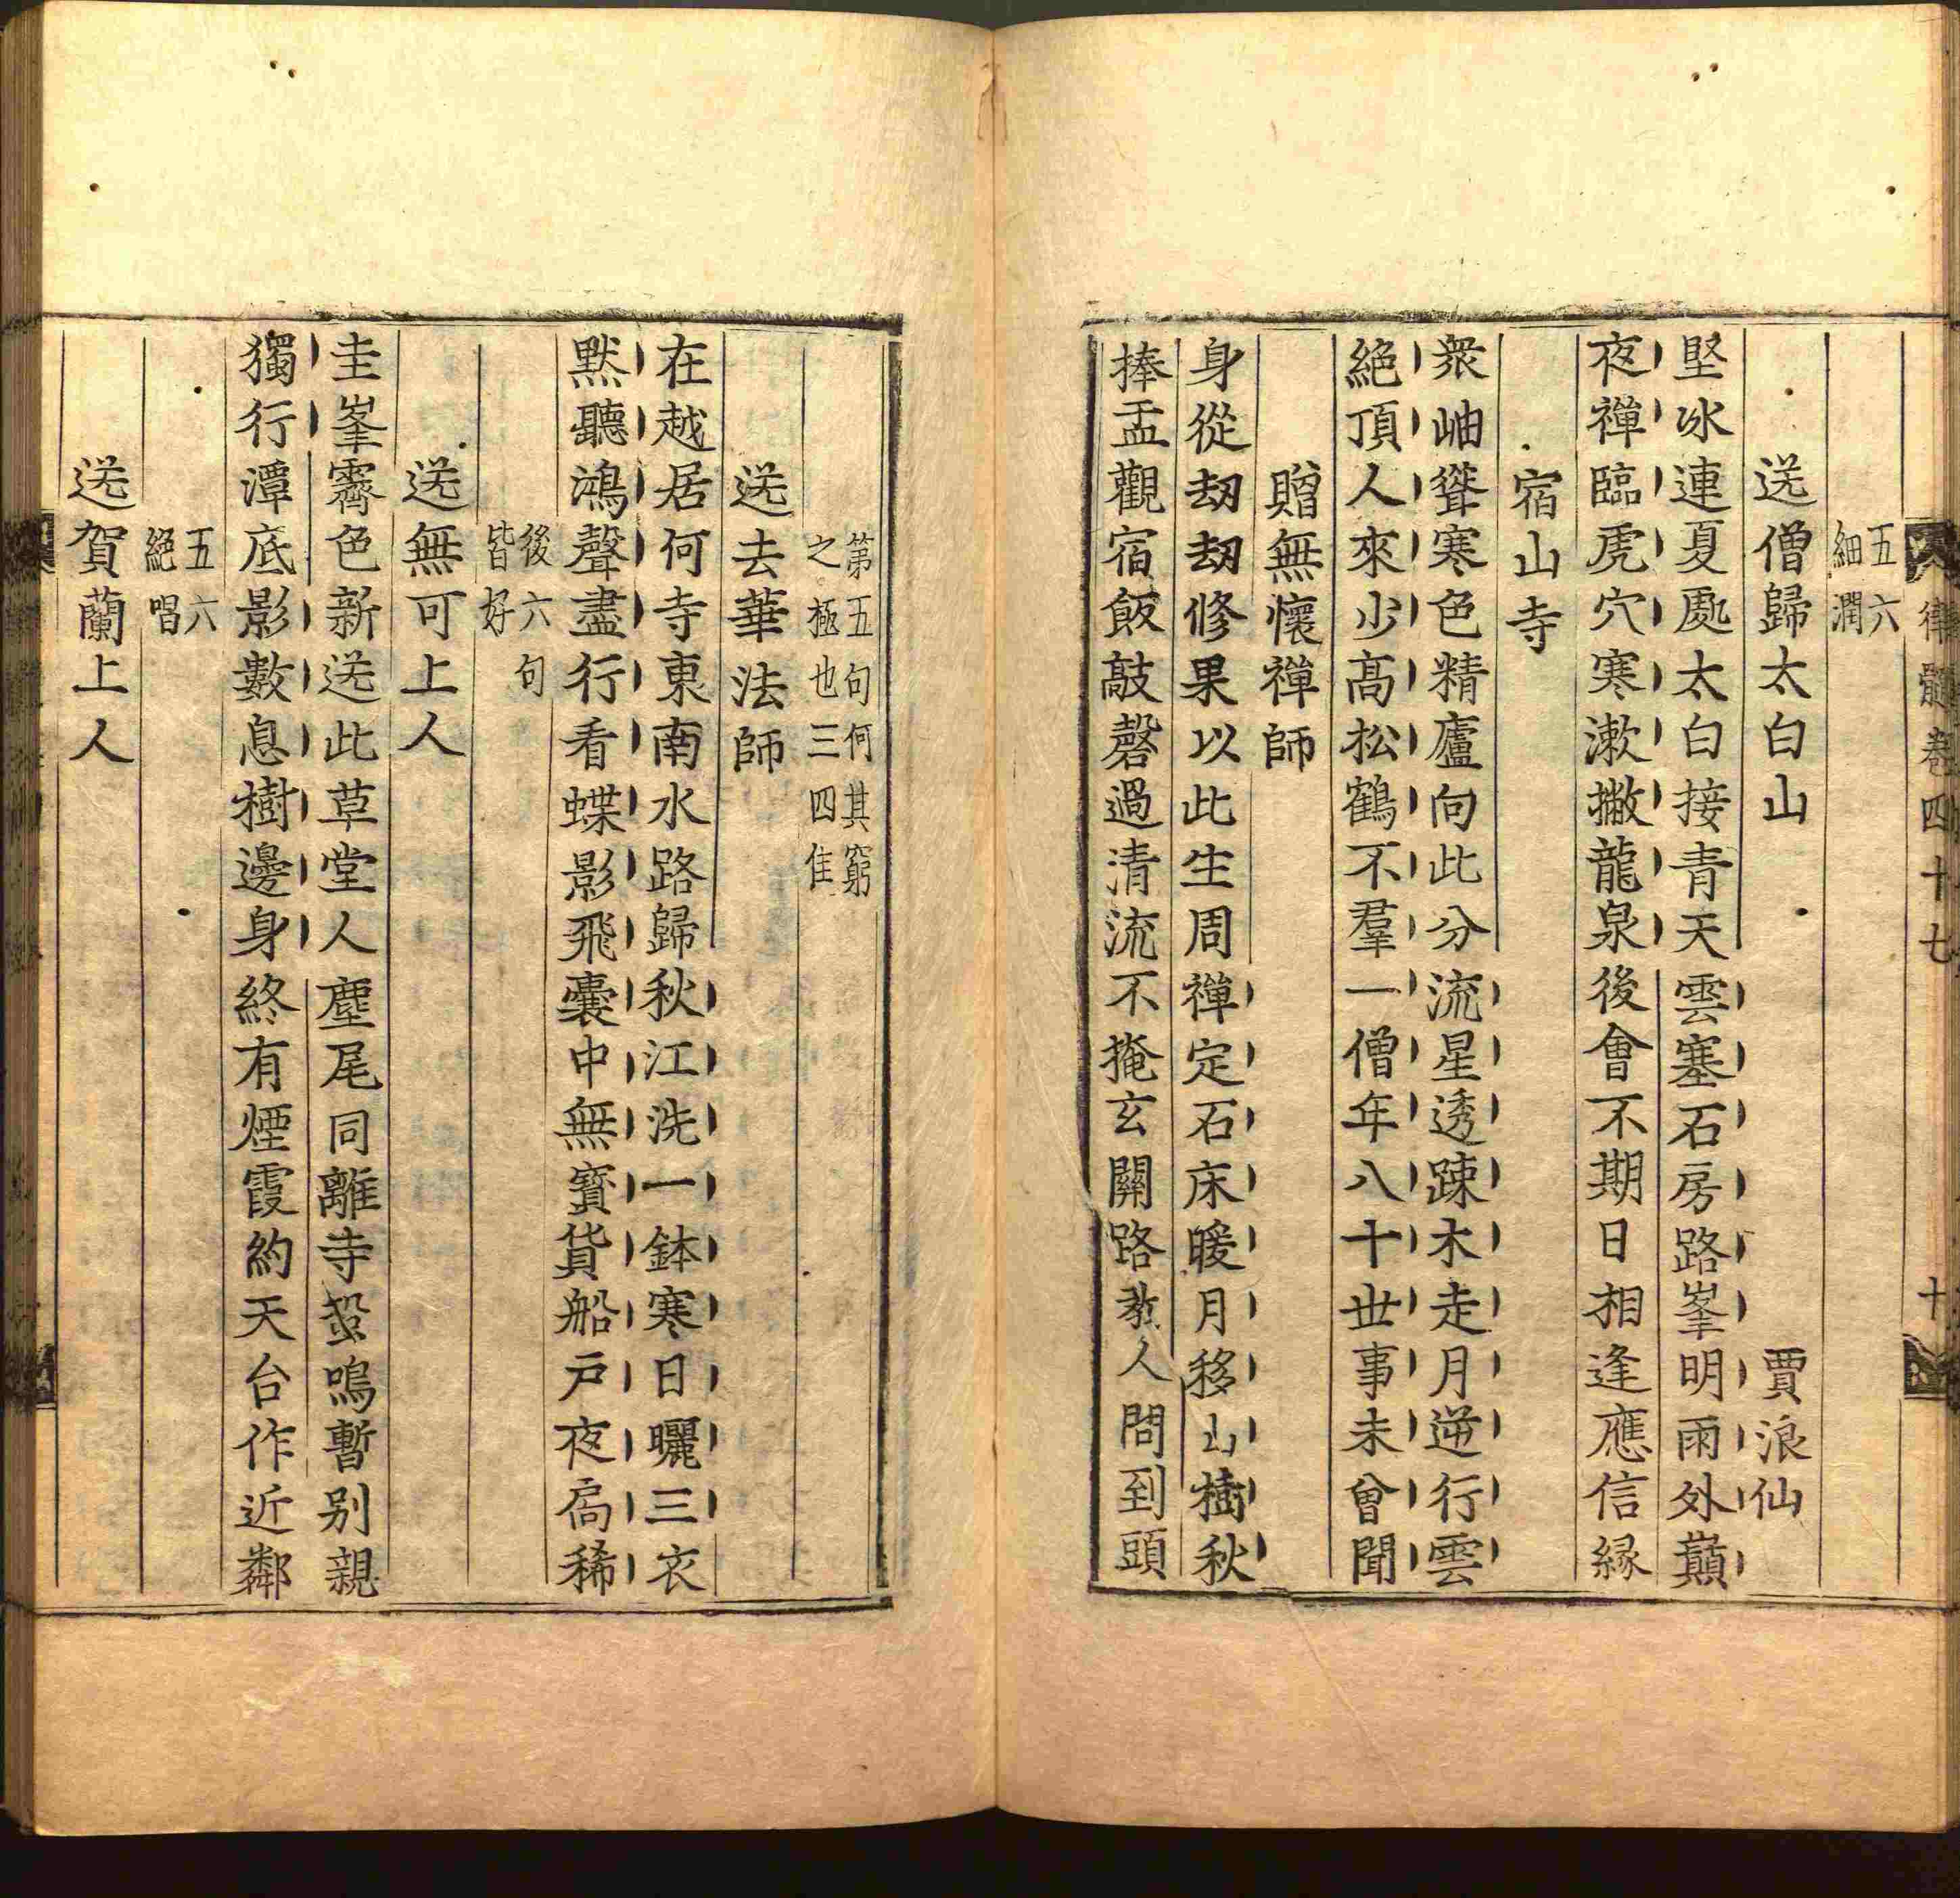 律髓卷四十七
十
五六
細潤
送僧歸太白山
賈浪仙
堅冰連夏處太白接青天雲塞石房路峯明雨外巔
夜禪臨虎穴寒漱撇龍泉後會不期日相逢應信緣
宿山寺
衆岫聳寒色精廬向此分流星透踈木走月逆行雲
絶頂人來少高松鶴不羣一僧年八十世事未曾聞
贈無懷禪師
身從劫劫修果以此生周禪定石床暖月移山樹秋
捧盂觀宿飯敲磬過清流不掩玄關路教人問到頭
第五句何其窮
之極也三四佳
送去華法師
在越居何寺東南水路歸秋江洗一鉢寒日曬三衣
黙聽鴻聲盡行看蝶影飛囊中無寳貨船戸夜扃稀
後六句
皆好
送無可上人
圭峯霽色新送此草堂人麈尾同離寺蛩鳴暫别親
獨行潭底影數息樹邊身終有煙霞約天台作近鄰
五六
絶唱
送賀蘭上人